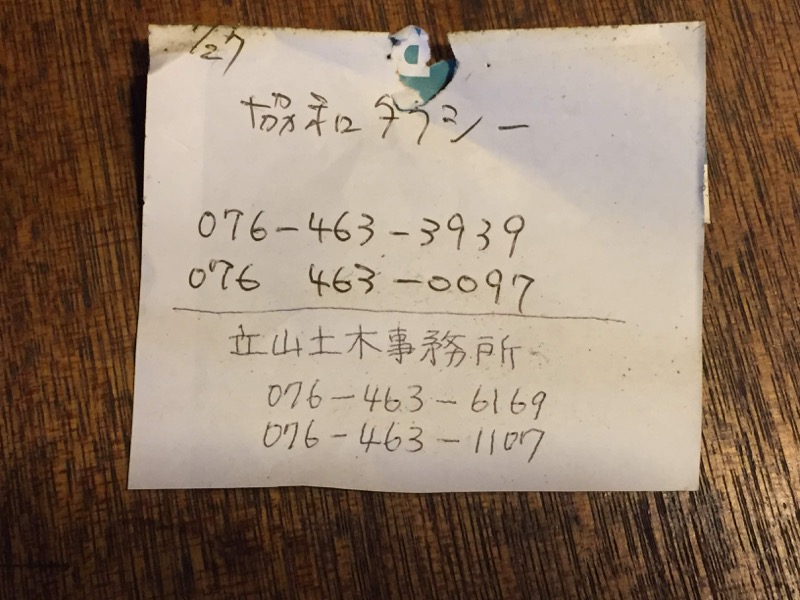 7/27
協和タクシー
076-463-3939
076 463-0097
立山土木事務所
076-463-6169
076-463-1107